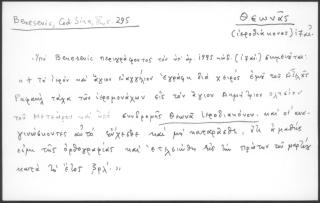 Benesevic, Cod. Sin., σ. 295
Θεωνᾶς
(ἱεροδιάκονος) ιζ´αἰ.
Ὑπὸ Benesevic περιγράφοντος τὸν ὑπ' ἀρ. 1995 κώδ. (ιζ´αἰ) σημειοῦται:
«+ τὸ ἱερὸν καὶ ἅγιον εὐαγγέλιον ἐγράφη διὰ χειρὸς ἐμοῦ τοῦ εὐτελοῦς
Ραφαὴλ τάχα τῶν ἱερομονάχων εἰς τὸν ἅγιον Δημήτριον πλησίον
τοῦ Μετεώρου καὶ διὰ συνδρομῆς Θεωνᾶ ἱεροδιακόνου. καὶ οἱ ἀνα-
γινώσκοντες αὐτὸ εὔχεσθε καὶ μὴ καταρᾶσθε, ὅτι ἀμαθὴς
εἰμι τῆς ὀρθογραφίας καὶ ἐτελειώθη εἰς τὴν πρώτην τοῦ μαρτίου
κατὰ τὸ ἔτος ζρλ´.»